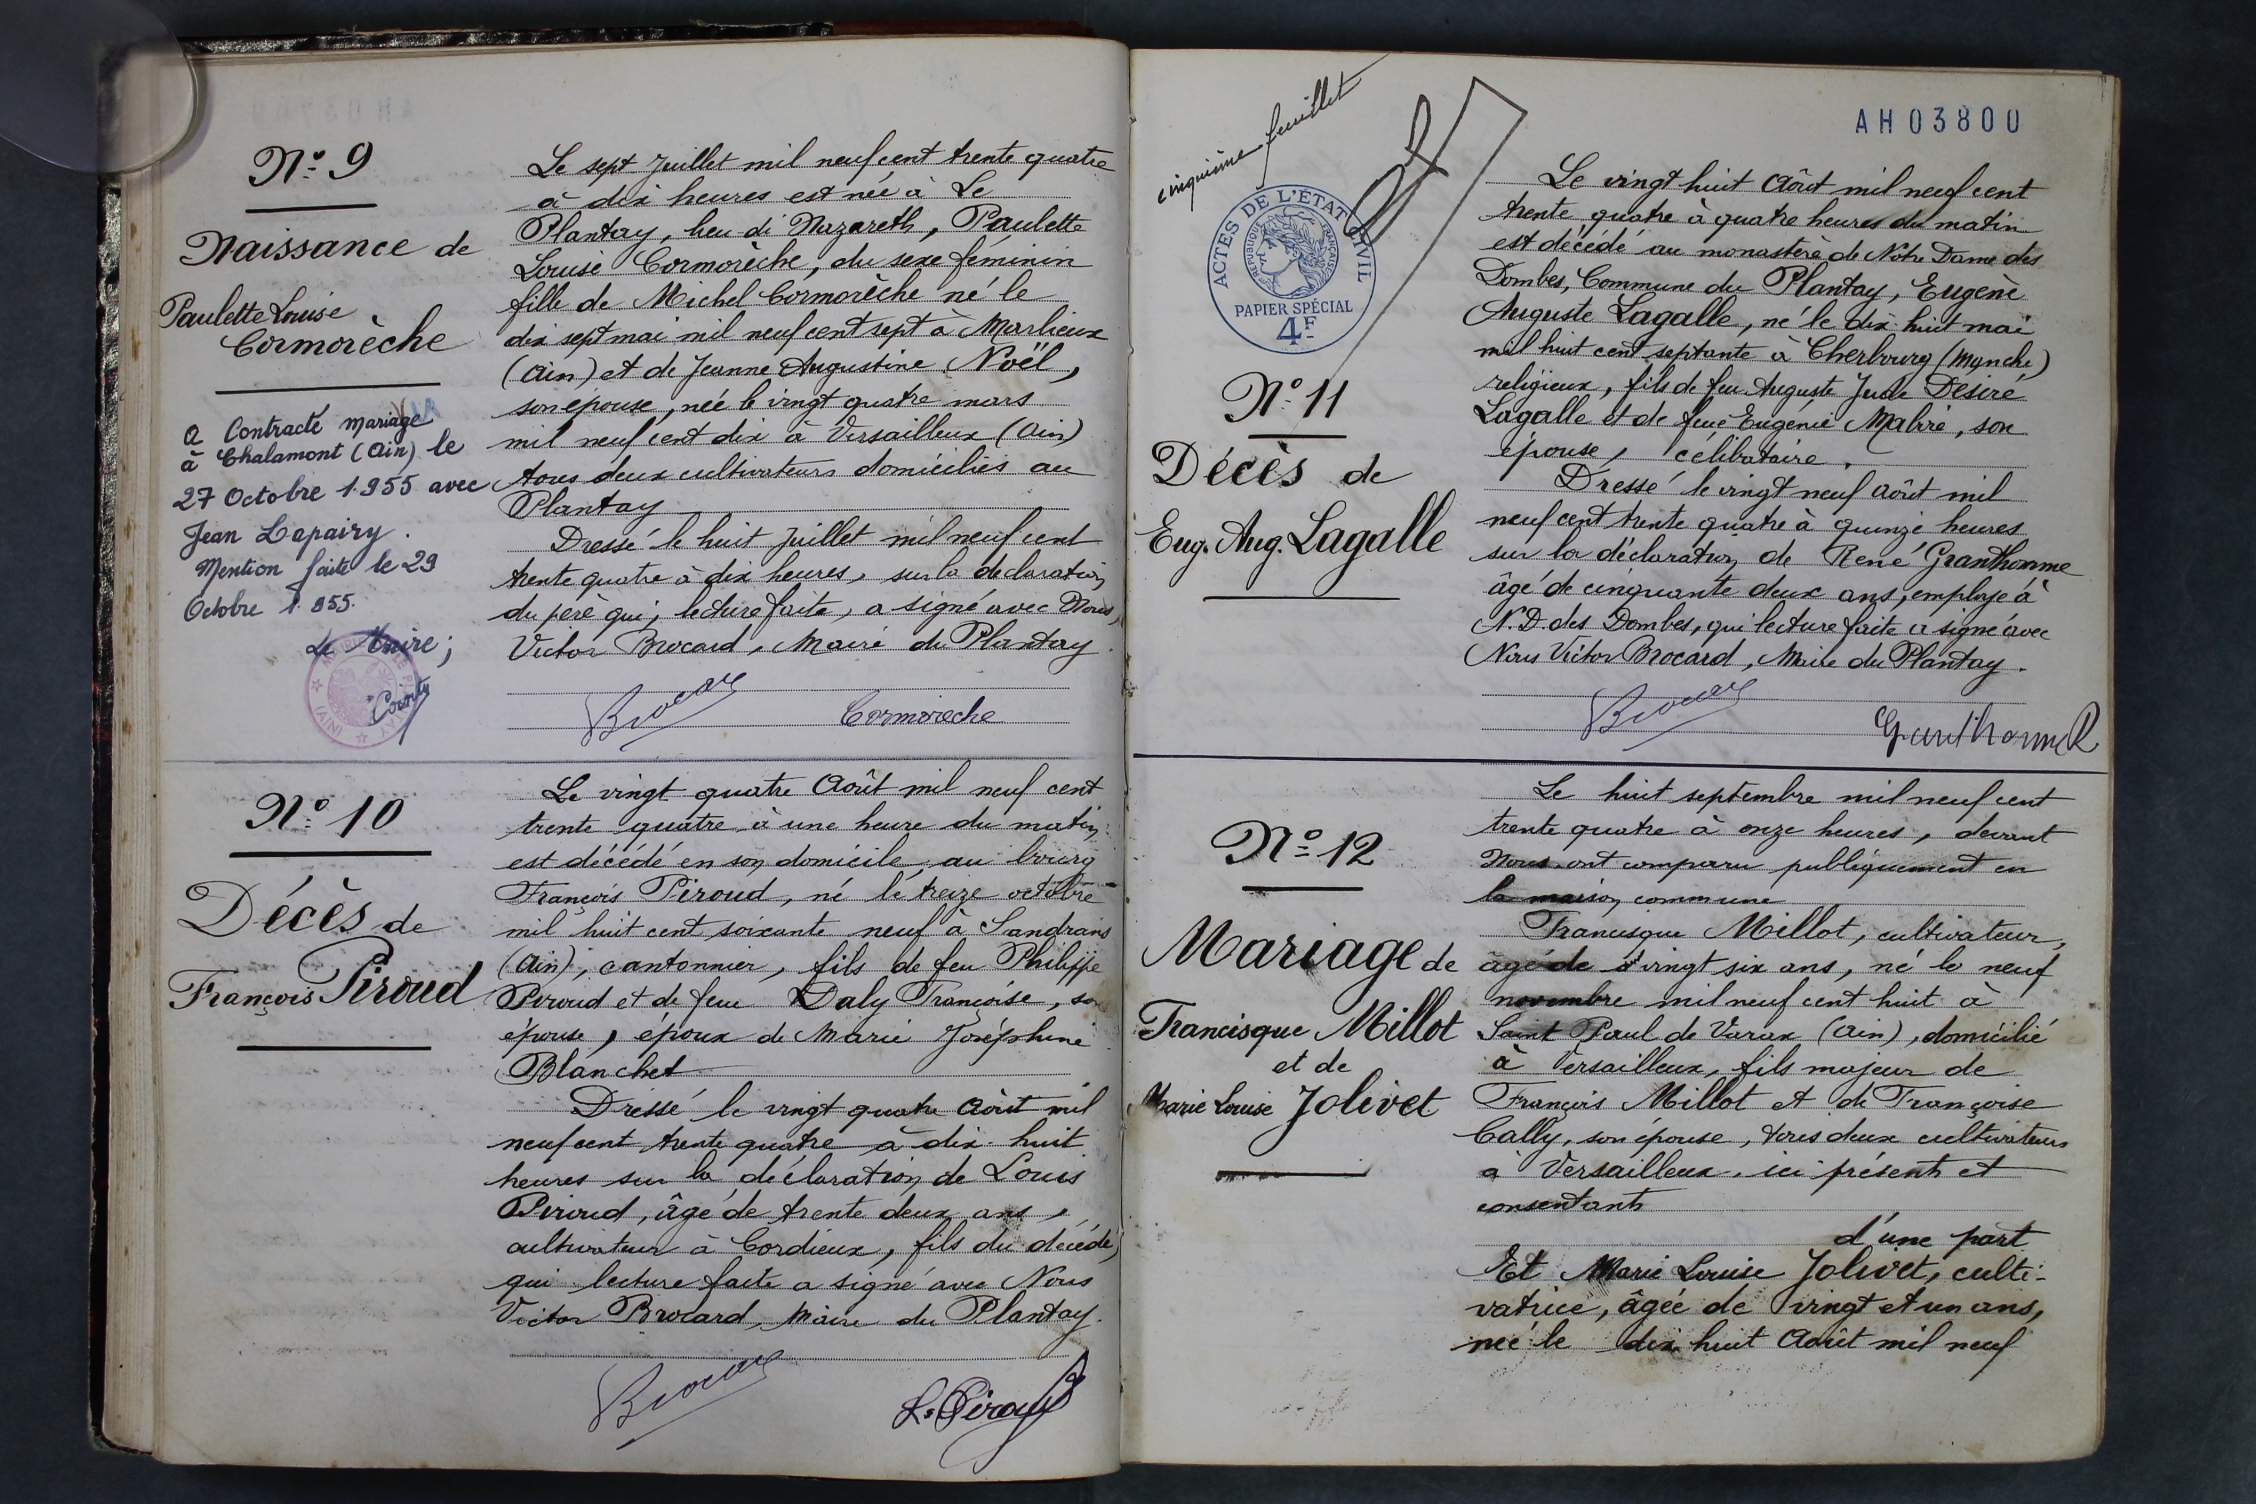 N° 9
Naissance de
Paulette Louise
Cormorèche
a Contracté mariage
à Chalamont (Ain) le
27 Octobre 1955 avec
Jean Lapairy.
Mention faite le 29
Octobre 1955.
Le Maire;
Le sept Juillet mil neuf cent trente quatre
à dix heures est née à Le
Plantay, lieu di Nazareth, Paulette
Louise Cormorèche, du sexe féminin
fille de Michel Cormorèche né le
dix sept mai mil neuf cent sept à Marlieux
(Ain) et de Jeanne Augustine Noël,
son épouse, née le vingt quatre mars
mil neuf cent dix à Versailleux (Ain)
tous deux cultivateurs domiciliés au
Plantay
Dressé le huit Juillet mil neuf cent
trente quatre à dix heures, sur la déclaration
du père qui, lecture faite, a signé avec Nous,
Victor Brocard, Maire du Plantay.
Brocard Cormorèche
N° 10
Décès de
François Piroud
Le vingt quatre Août mil neuf cent
trente quatre à une heure du matin
est décédé en son domicile au bourg
François Piroud, né le treize octobre
mil huit cent soixante neuf à Sandrans
(Ain), cantonnier, fils de feu Philippe
Piroud et de feue Daly Françoise, son
épouse, époux de Marie Joséphine
Blanchet
Dressé le vingt quatre Août mil
neuf cent trente quatre à dix-huit
heures sur la déclaration de Louis
Piroud, âgé de trente deux ans,
cultivateur à Cordieux, fils du décédé,
qui lecture faite a signé avec Nous
Victor Brocard, Maire du Plantay.
Brocard L. Piroud
cinquième feuillet
AH03800
ACTES DE L'ÉTAT CIVIL
RÉPUBLIQUE FRANÇAISE
PAPIER SPÉCIAL
4F
N° 11
Décès de
Eug. Aug. Lagalle
Le vingt huit Août mil neuf cent
trente quatre à quatre heures du matin
est décédé au monastère de Notre Dame des
Dombes, Commune du Plantay, Eugène
Auguste Lagalle, né le dix huit mai
mil huit cent septante à Cherbourg (Manche)
religieux, fils de feu Auguste Jude Désiré
Lagalle et de feue Eugénie Mabire, son
épouse, célibataire.
Dressé le vingt neuf Août mil
neuf cent trente quatre à quinze heures
sur la déclaration de René Granthomme
âgé de cinquante deux ans, employé à
N.D. des Dombes, qui lecture faite a signé avec
Nous Victor Brocard, Maire du Plantay.
Brocard Granthomme R
N° 12
Mariage de
Francisque Millot
et de
Marie Louise Jolivet
Le huit septembre mil neuf cent
trente quatre à onze heures, devant
Nous ont comparu publiquement en
la maison commune
Francisque Millot, cultivateur,
âgé de vingt six ans, né le neuf
novembre mil neuf cent huit à
Saint Paul de Varax (Ain), domicilié
à Versailleux, fils majeur de
François Millot et de Françoise
Cally, son épouse, tous deux cultivateurs
à Versailleux, ici présents et
consentants
d'une part
Et Marie Louise Jolivet, culti-
vatrice, âgée de vingt et un ans,
née le dix huit Août mil neuf